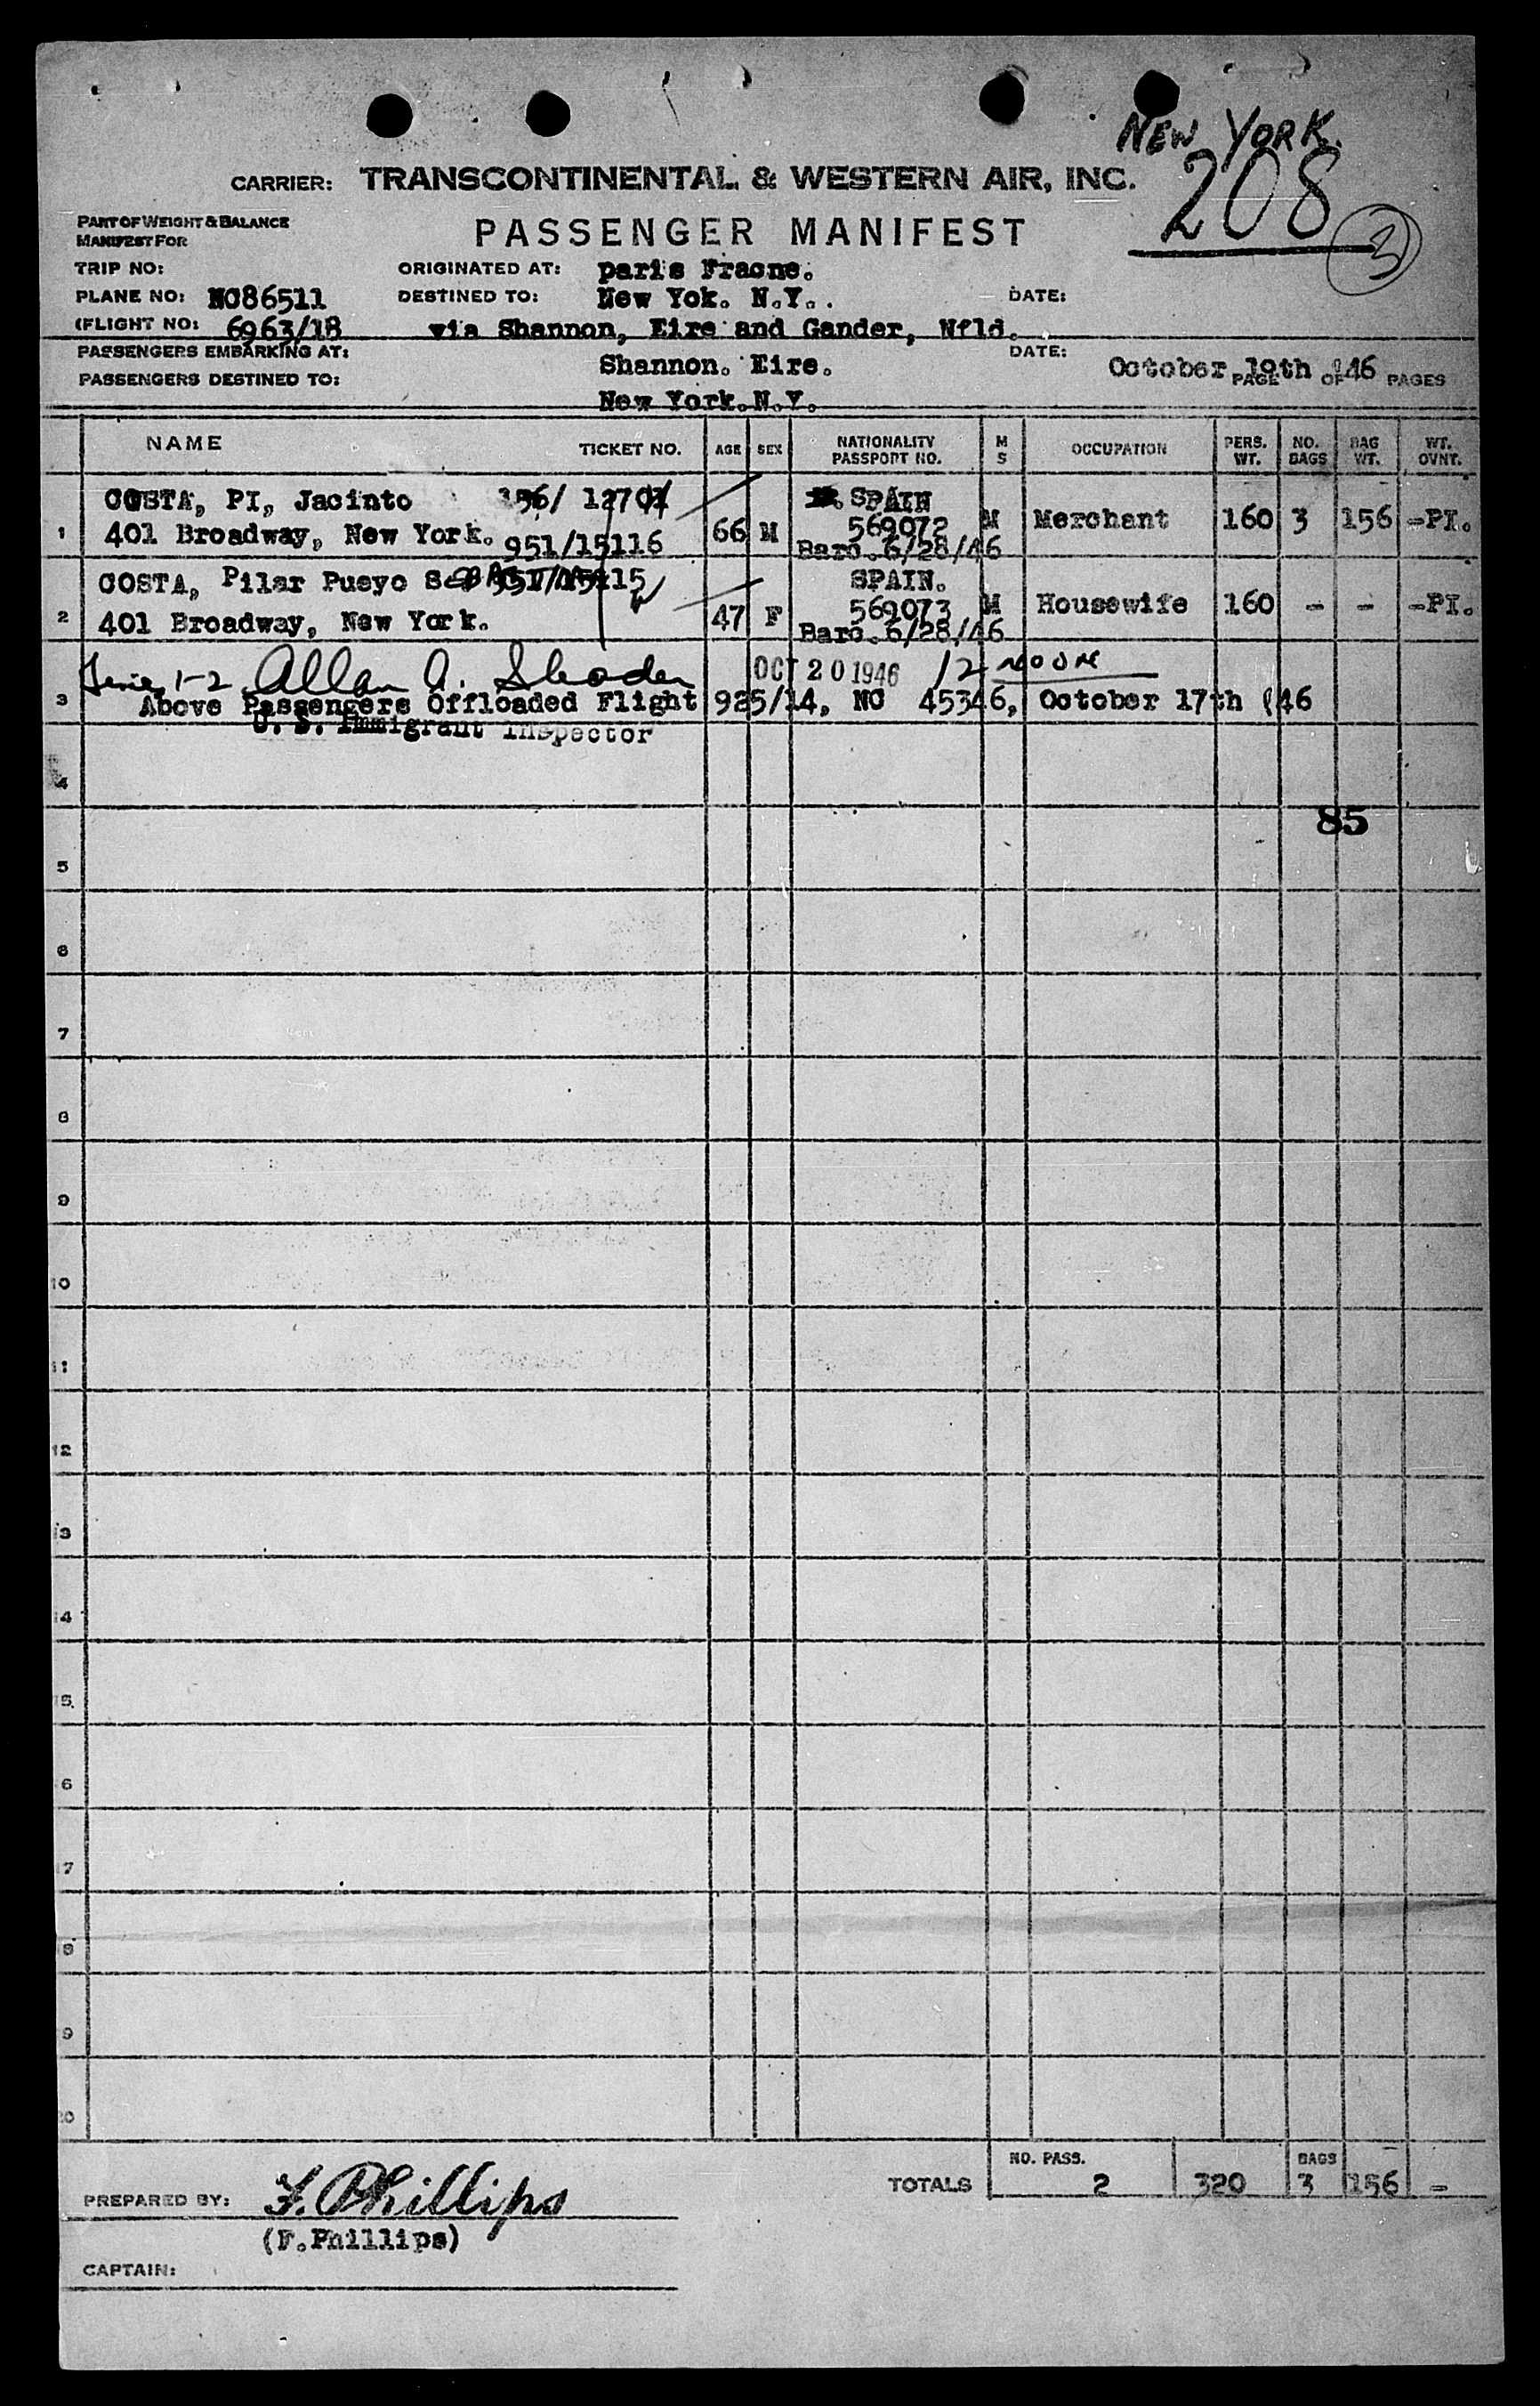 NEW YORK.
208
3
CARRIER: TRANSCONTINENTAL & WESTERN AIR, INC.
PART OF WEIGHT & BALANCE
MANIFEST FOR
PASSENGER MANIFEST
TRIP NO:
ORIGINATED AT: paris Fracne.
PLANE NO: NC86511
DESTINED TO: New Yok. N.Y..
DATE:
(FLIGHT NO: 6963/18
via Shannon, Eire and Gander, Nfld.
PASSENGERS EMBARKING AT: Shannon. Eire.
DATE: October 19th 46
PASSENGERS DESTINED TO: New York.N.Y.
PAGE OF PAGES
NAME TICKET NO. AGE SEX NATIONALITY PASSPORT NO. M S OCCUPATION PERS. WT. NO. BAGS BAG WT. WT. OVNT.
COSTA, PI, Jacinto 156/ 12701 SPAIN
1 401 Broadway, New York. 951/15116 66 M 569072 M Merchant 160 3 156 -PI.
Barc. 6/28/46
COSTA, Pilar Pueyo 951/15115 SPAIN.
2 401 Broadway, New York. 47 F 569073 M Housewife 160 - - -PI.
Barc. 6/28/46
1-2 Allan A. OCT 20 1946 12 NOON
3 Above Passengers Offloaded Flight 925/14, NC 45346, October 17th (46
U. S. Immigrant Inspector
4
85
5
6
7
8
9
10
11
12
13
14
15
6
7
8
9
20
TOTALS NO. PASS. 2 320 BAGS 3 156 -
PREPARED BY: F. Phillips
(F.Phillips)
CAPTAIN: